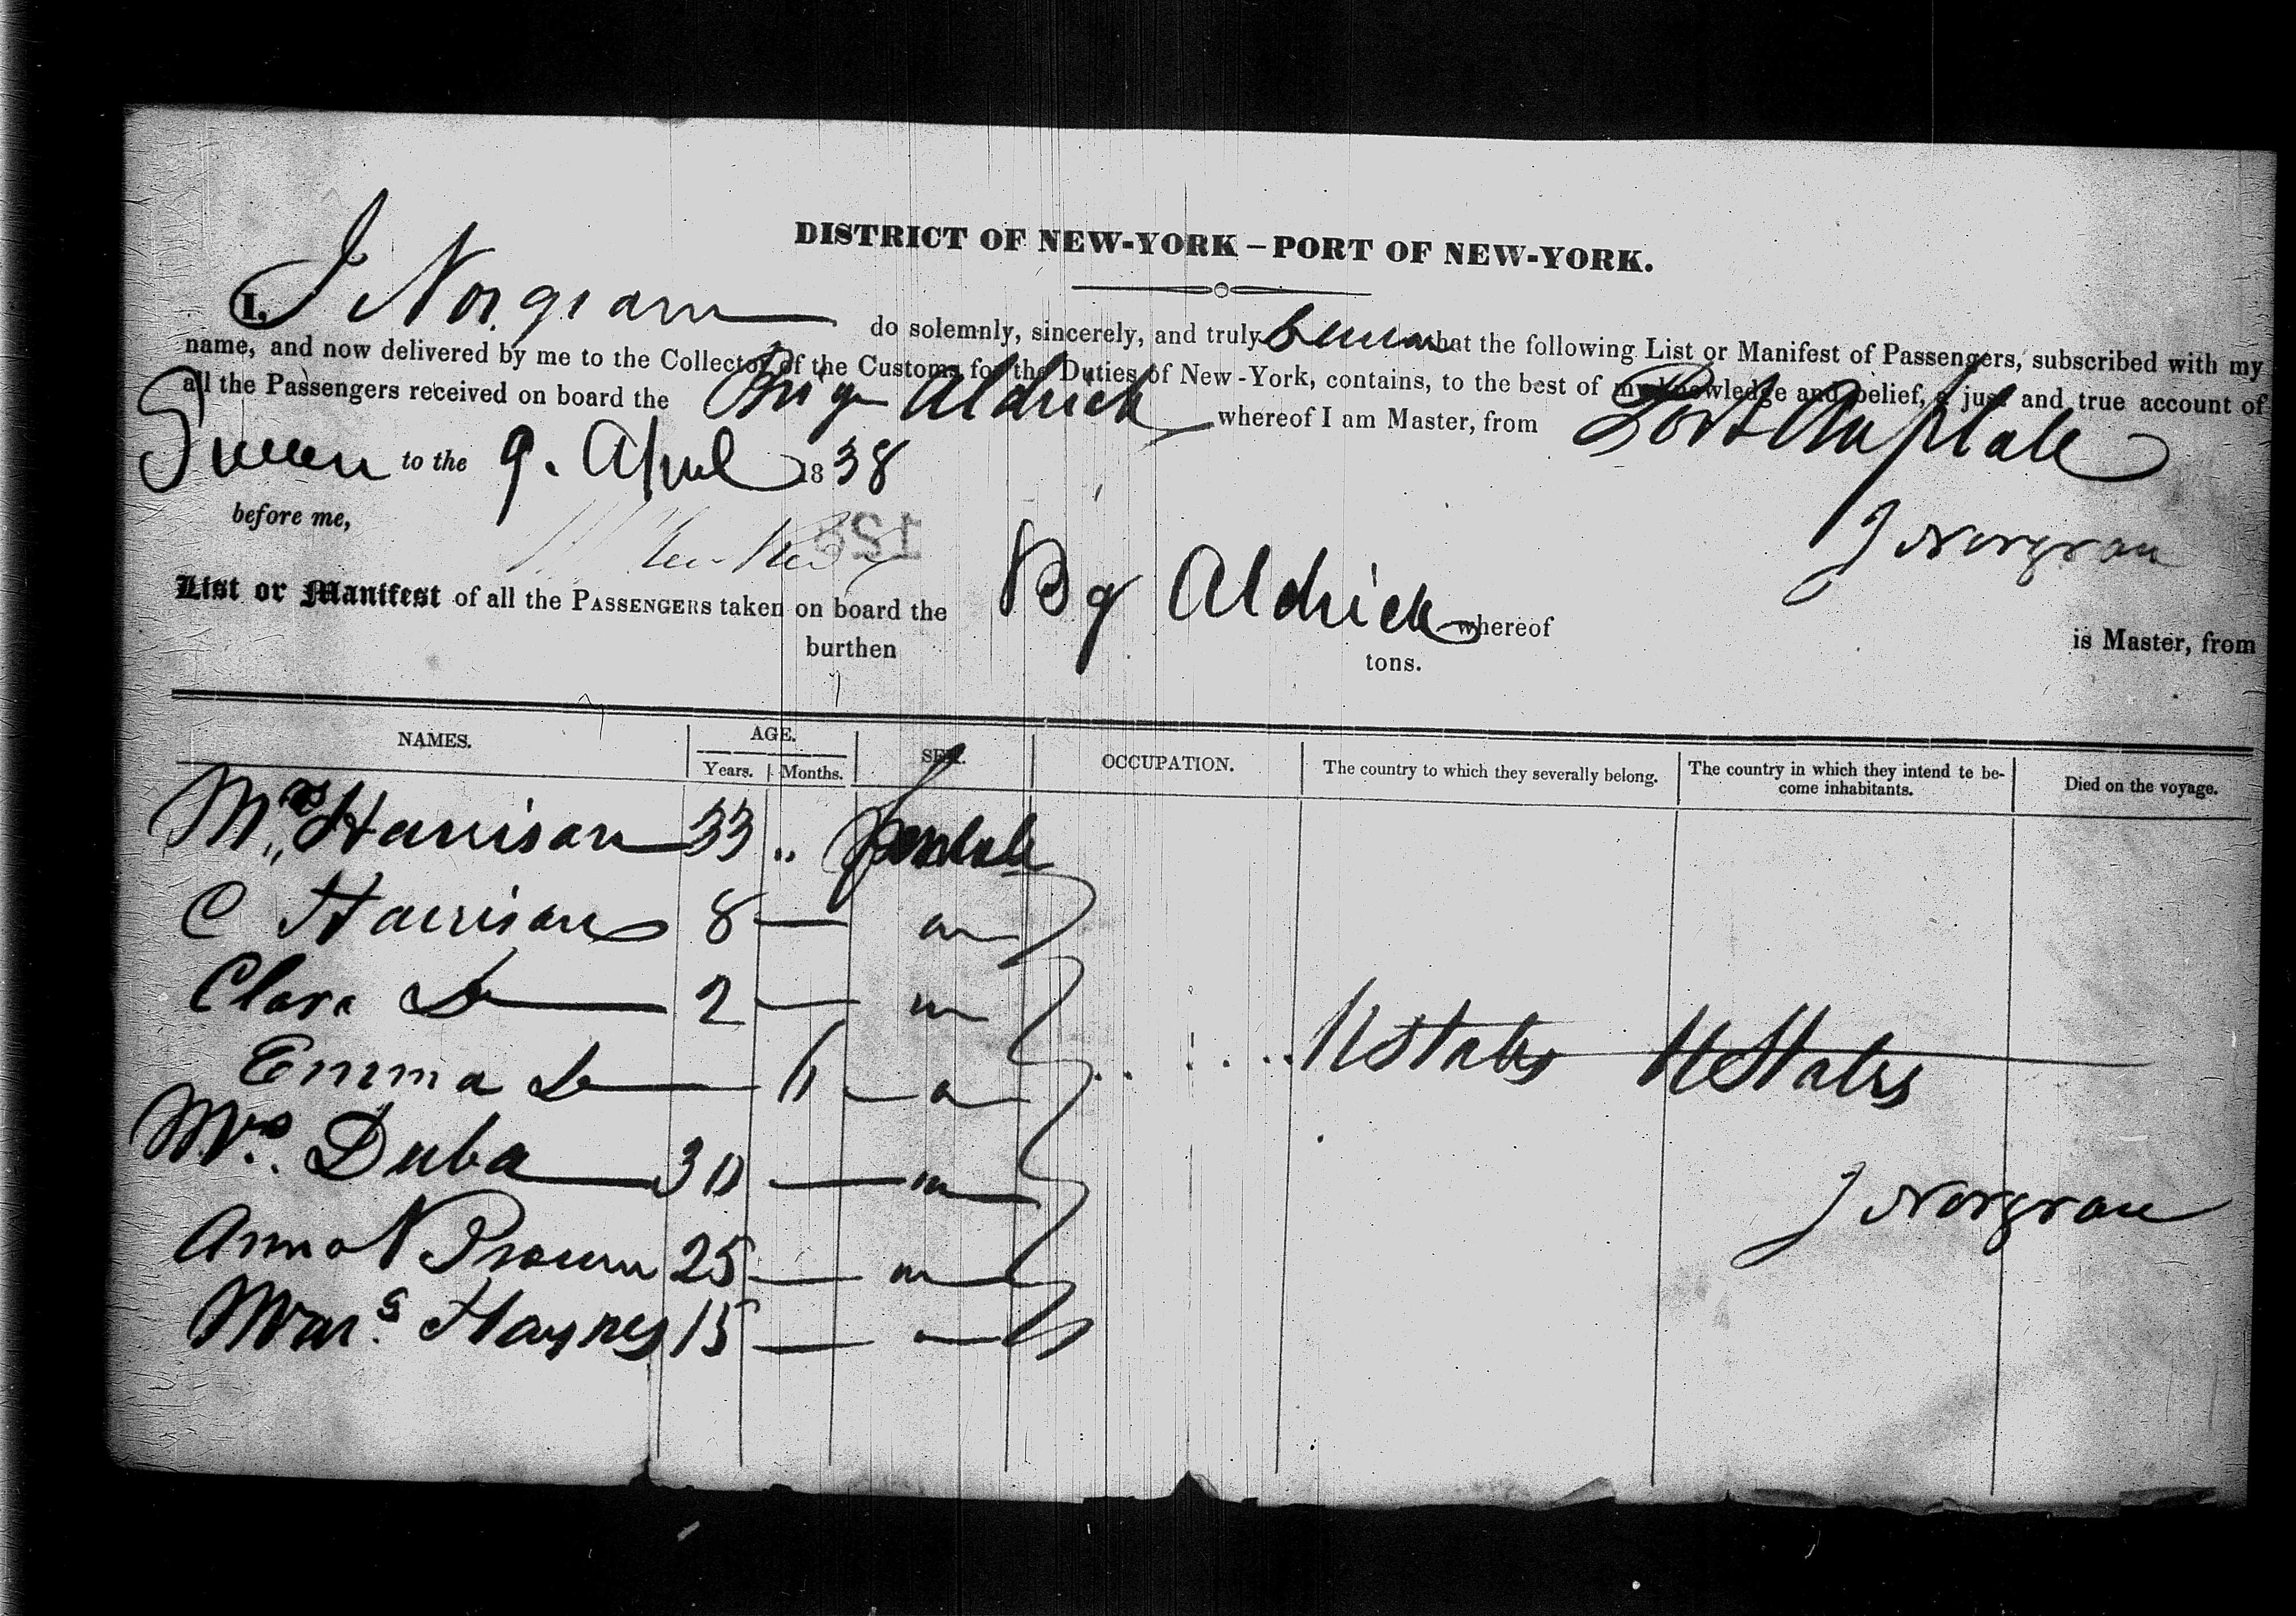 DISTRICT OF NEW-YORK – PORT OF NEW-YORK.
I, J Norgran do solemnly, sincerely, and truly Swear that the following List or Manifest of Passengers, subscribed with my
name, and now delivered by me to the Collector of the Customs for the Duties of New-York, contains, to the best of my knowledge and belief, a just and true account of
all the Passengers received on board the Brig Aldrich whereof I am Master, from Port Au Platt
Sworn to the 9. April 1838
before me,
J Norgran
List or Manifest of all the PASSENGERS taken on board the Bg Aldrich whereof is Master, from
burthen tons.
NAMES. AGE. SEX. OCCUPATION. The country to which they severally belong. The country in which they intend te be-
come inhabitants. Died on the voyage.
Years. Months.
Mrs Harrison 33 " female
C Harrison 8
Clara Do 2
Emma Do 11 UStates UStates
Mrs. Duba 30
Anna N Brown 25
J Norgran
Mar.s Haynes 15